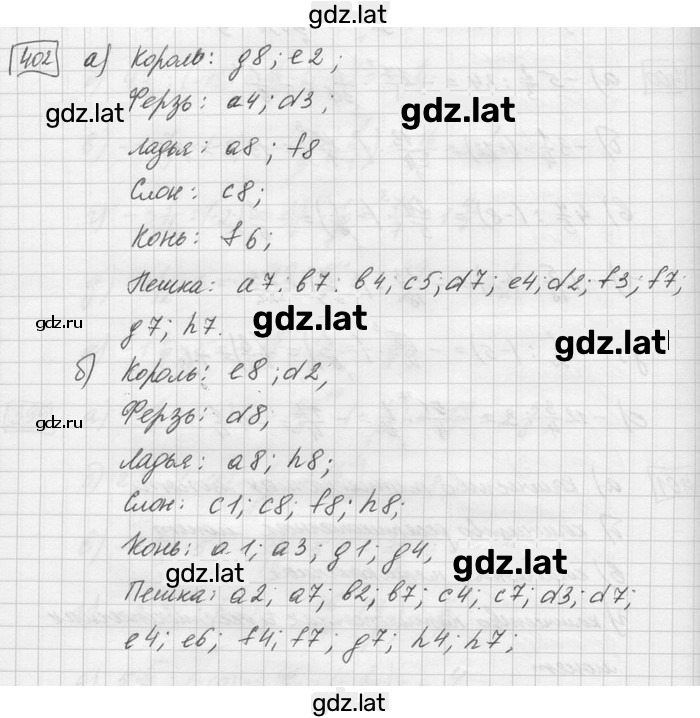 gdz.lat
402 а) Король: g8; e2;
gdz.lat Ферзь: a4; d3; gdz.lat
Ладья: a8; f8
Слон: c8;
Конь: f6;
Пешка: a7: b7: b4; c5; d7; e4; d2; f3; f7;
gdz.ru g7; h7. gdz.lat gdz.lat
б) Король: e8; d2,
gdz.ru Ферзь: d8,
Ладья: a8; h8;
Слон: c1; c8; f8; h8;
Конь: a1; a3; g1; g4, gdz.lat
gdz.lat gdz.lat
Пешка: a2, a7; b2; b7; c4; c7; d3; d7;
e4; e6; f4; f7; g7; h4; h7;
gdz.lat